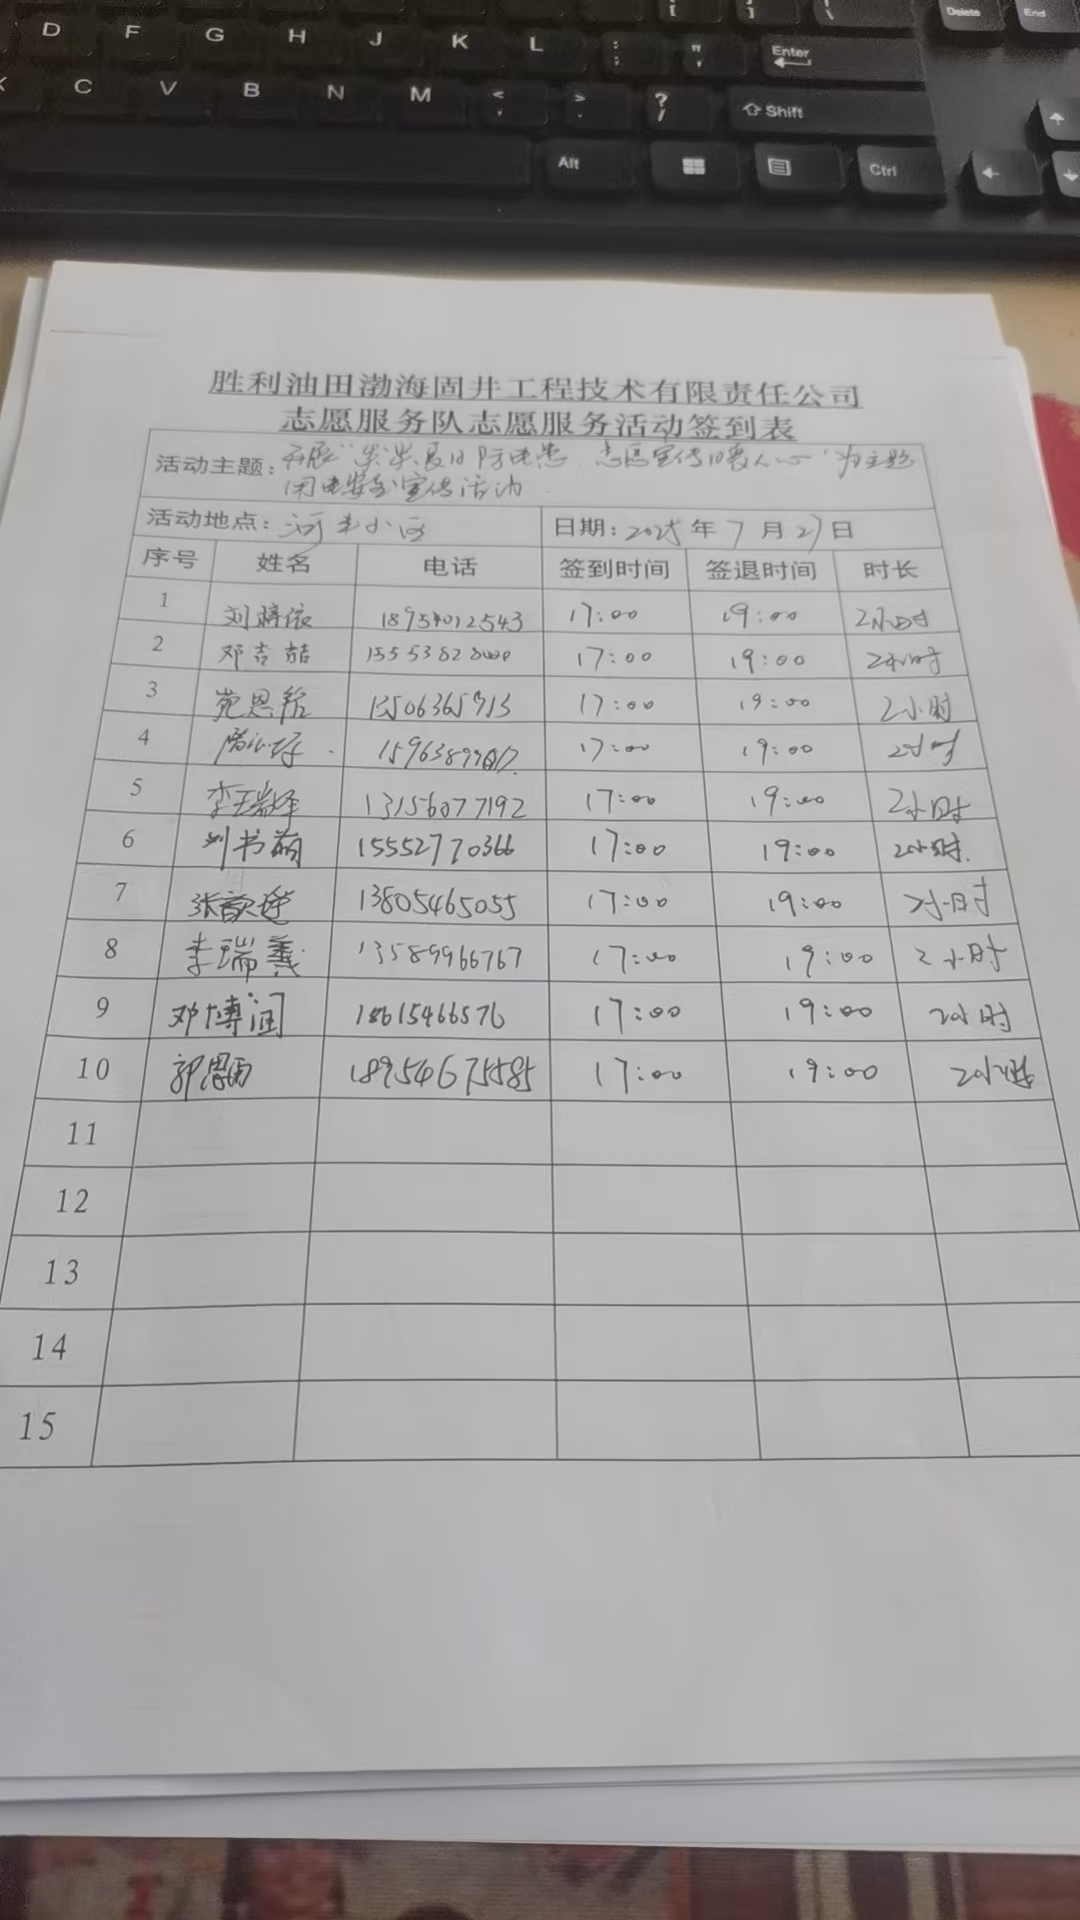 D F G H J K L : ; " ' Enter Delete End
C V B N M < , > . ? / Shift
Alt Ctrl
胜利油田渤海固井工程技术有限责任公司
志愿服务队志愿服务活动签到表
活动主题: 开展"炎炎夏日防电患 志愿宣传暖人心"为主题
用电安全宣传活动
活动地点: 河丰小区 日期: 2025年7月27日
序号 姓名 电话 签到时间 签退时间 时长
1 刘 18954012543 17:00 19:00 2小时
2 邓吉喆 1555382 17:00 19:00 2小时
3 苑思 13506365913 17:00 19:00 2小时
4 17:00 19:00 2小时
5 李瑞泽 13156077192 17:00 19:00 2小时
6 刘书萌 15552770366 17:00 19:00 2小时
7 张歆 13805465055 17:00 19:00 2小时
8 李瑞羲 13589966767 17:00 19:00 2小时
9 邓博润 18615466576 17:00 19:00 2小时
10 郭思雨 18954675585 17:00 19:00 2小时
11
12
13
14
15